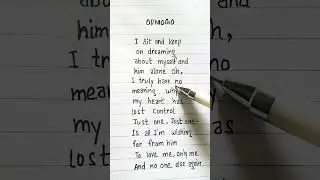 ODNOGO
I sit and keep
on dreaming
about myself and
him alone oh,
I truly have no
meaning
my heart has
lost control
Just one, Just one
Is all I'm wishing
for from him
To love me, only me
And no one else again